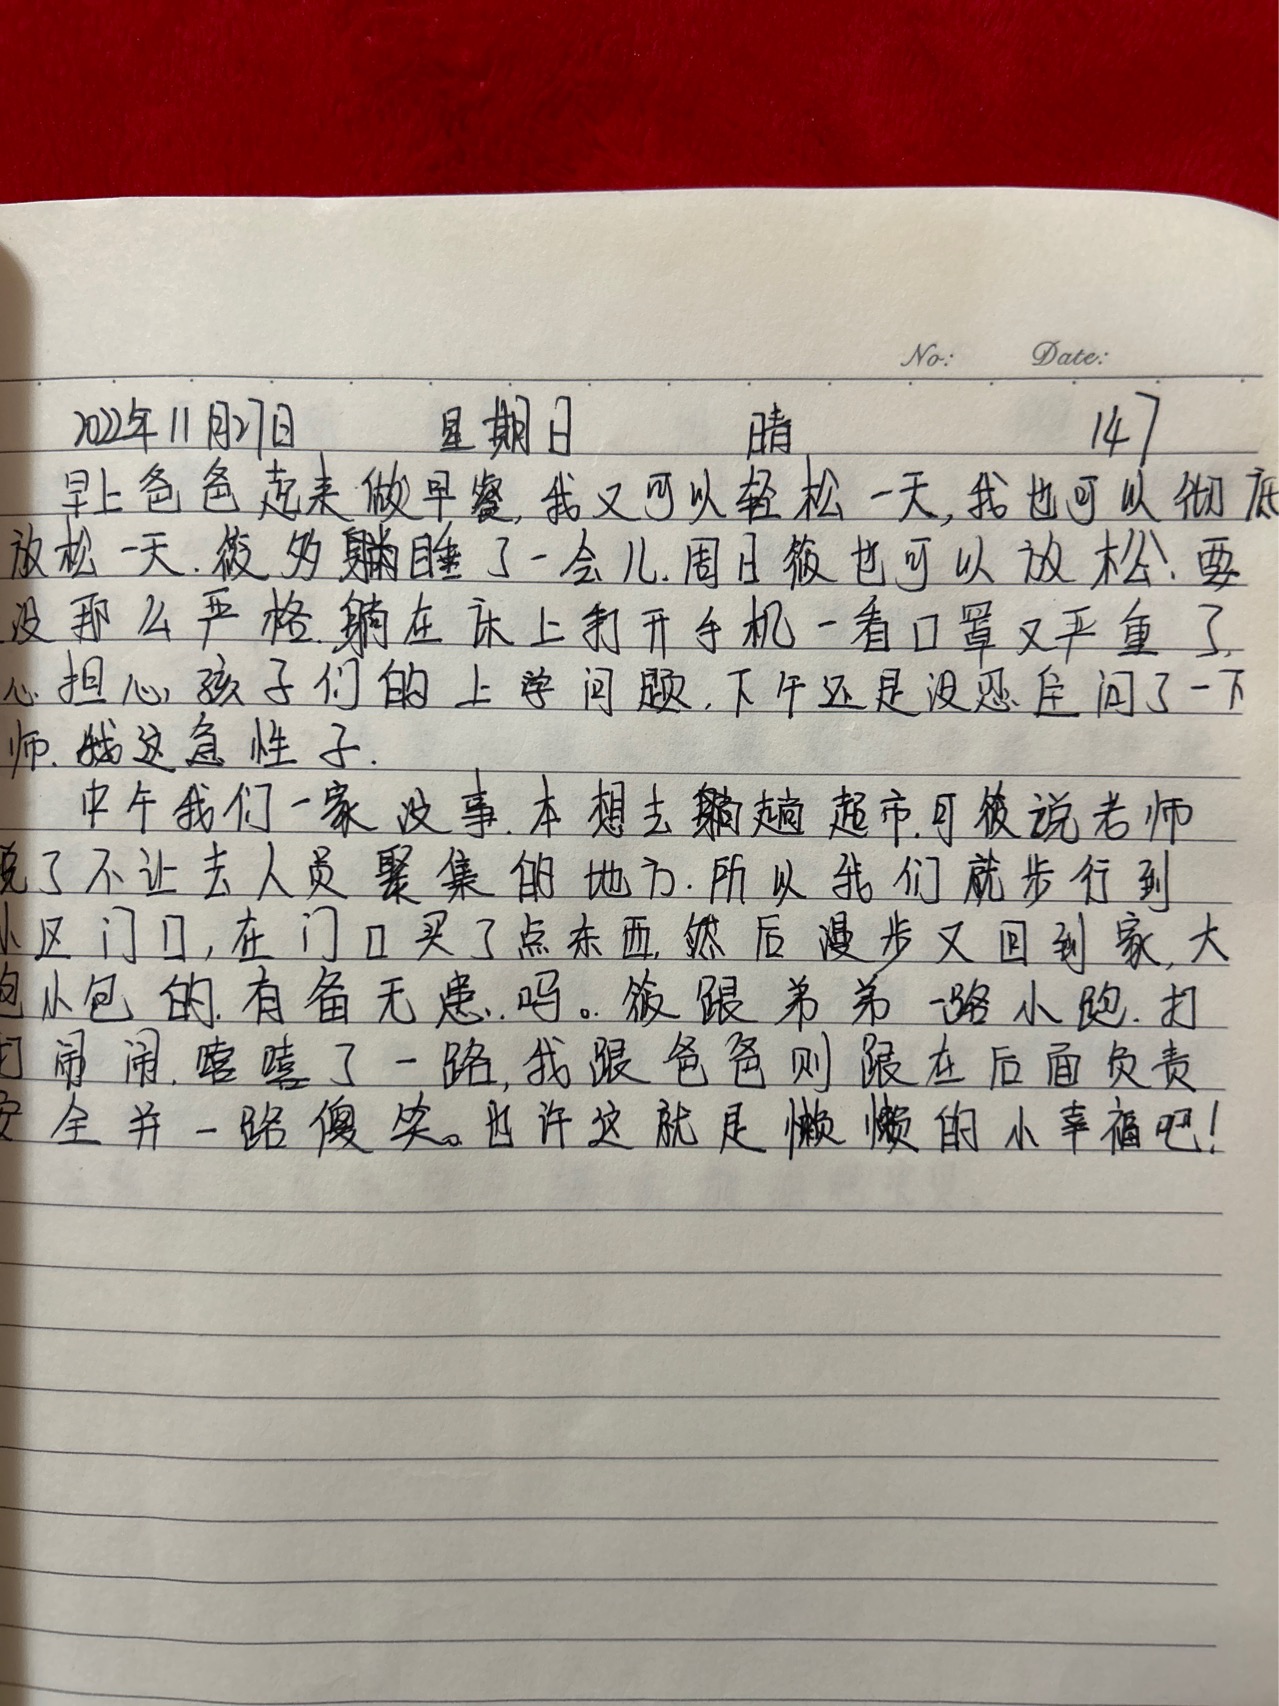 No: Date:
2022年11月27日 星期日 晴 147
早上爸爸起来做早餐,我又可以轻松一天,我也可以彻底
放松一天.筱多躺睡了一会儿.周日筱也可以放松!要
没那么严格.躺在床上打开手机一看口罩又严重了.
心担心孩子们的上学问题.下午还是没忍住问了一下
师.我这急性子.
中午我们一家没事.本想去趟超市.可筱说老师
说了不让去人员聚集的地方.所以我们就步行到
小区门口,在门口买了点东西.然后漫步又回到家,大
包小包的.有备无患.吗。筱跟弟弟一路小跑.打
打闹闹.嘻嘻了一路,我跟爸爸则跟在后面负责
安全并一路傻笑。也许这就是懒懒的小幸福吧!